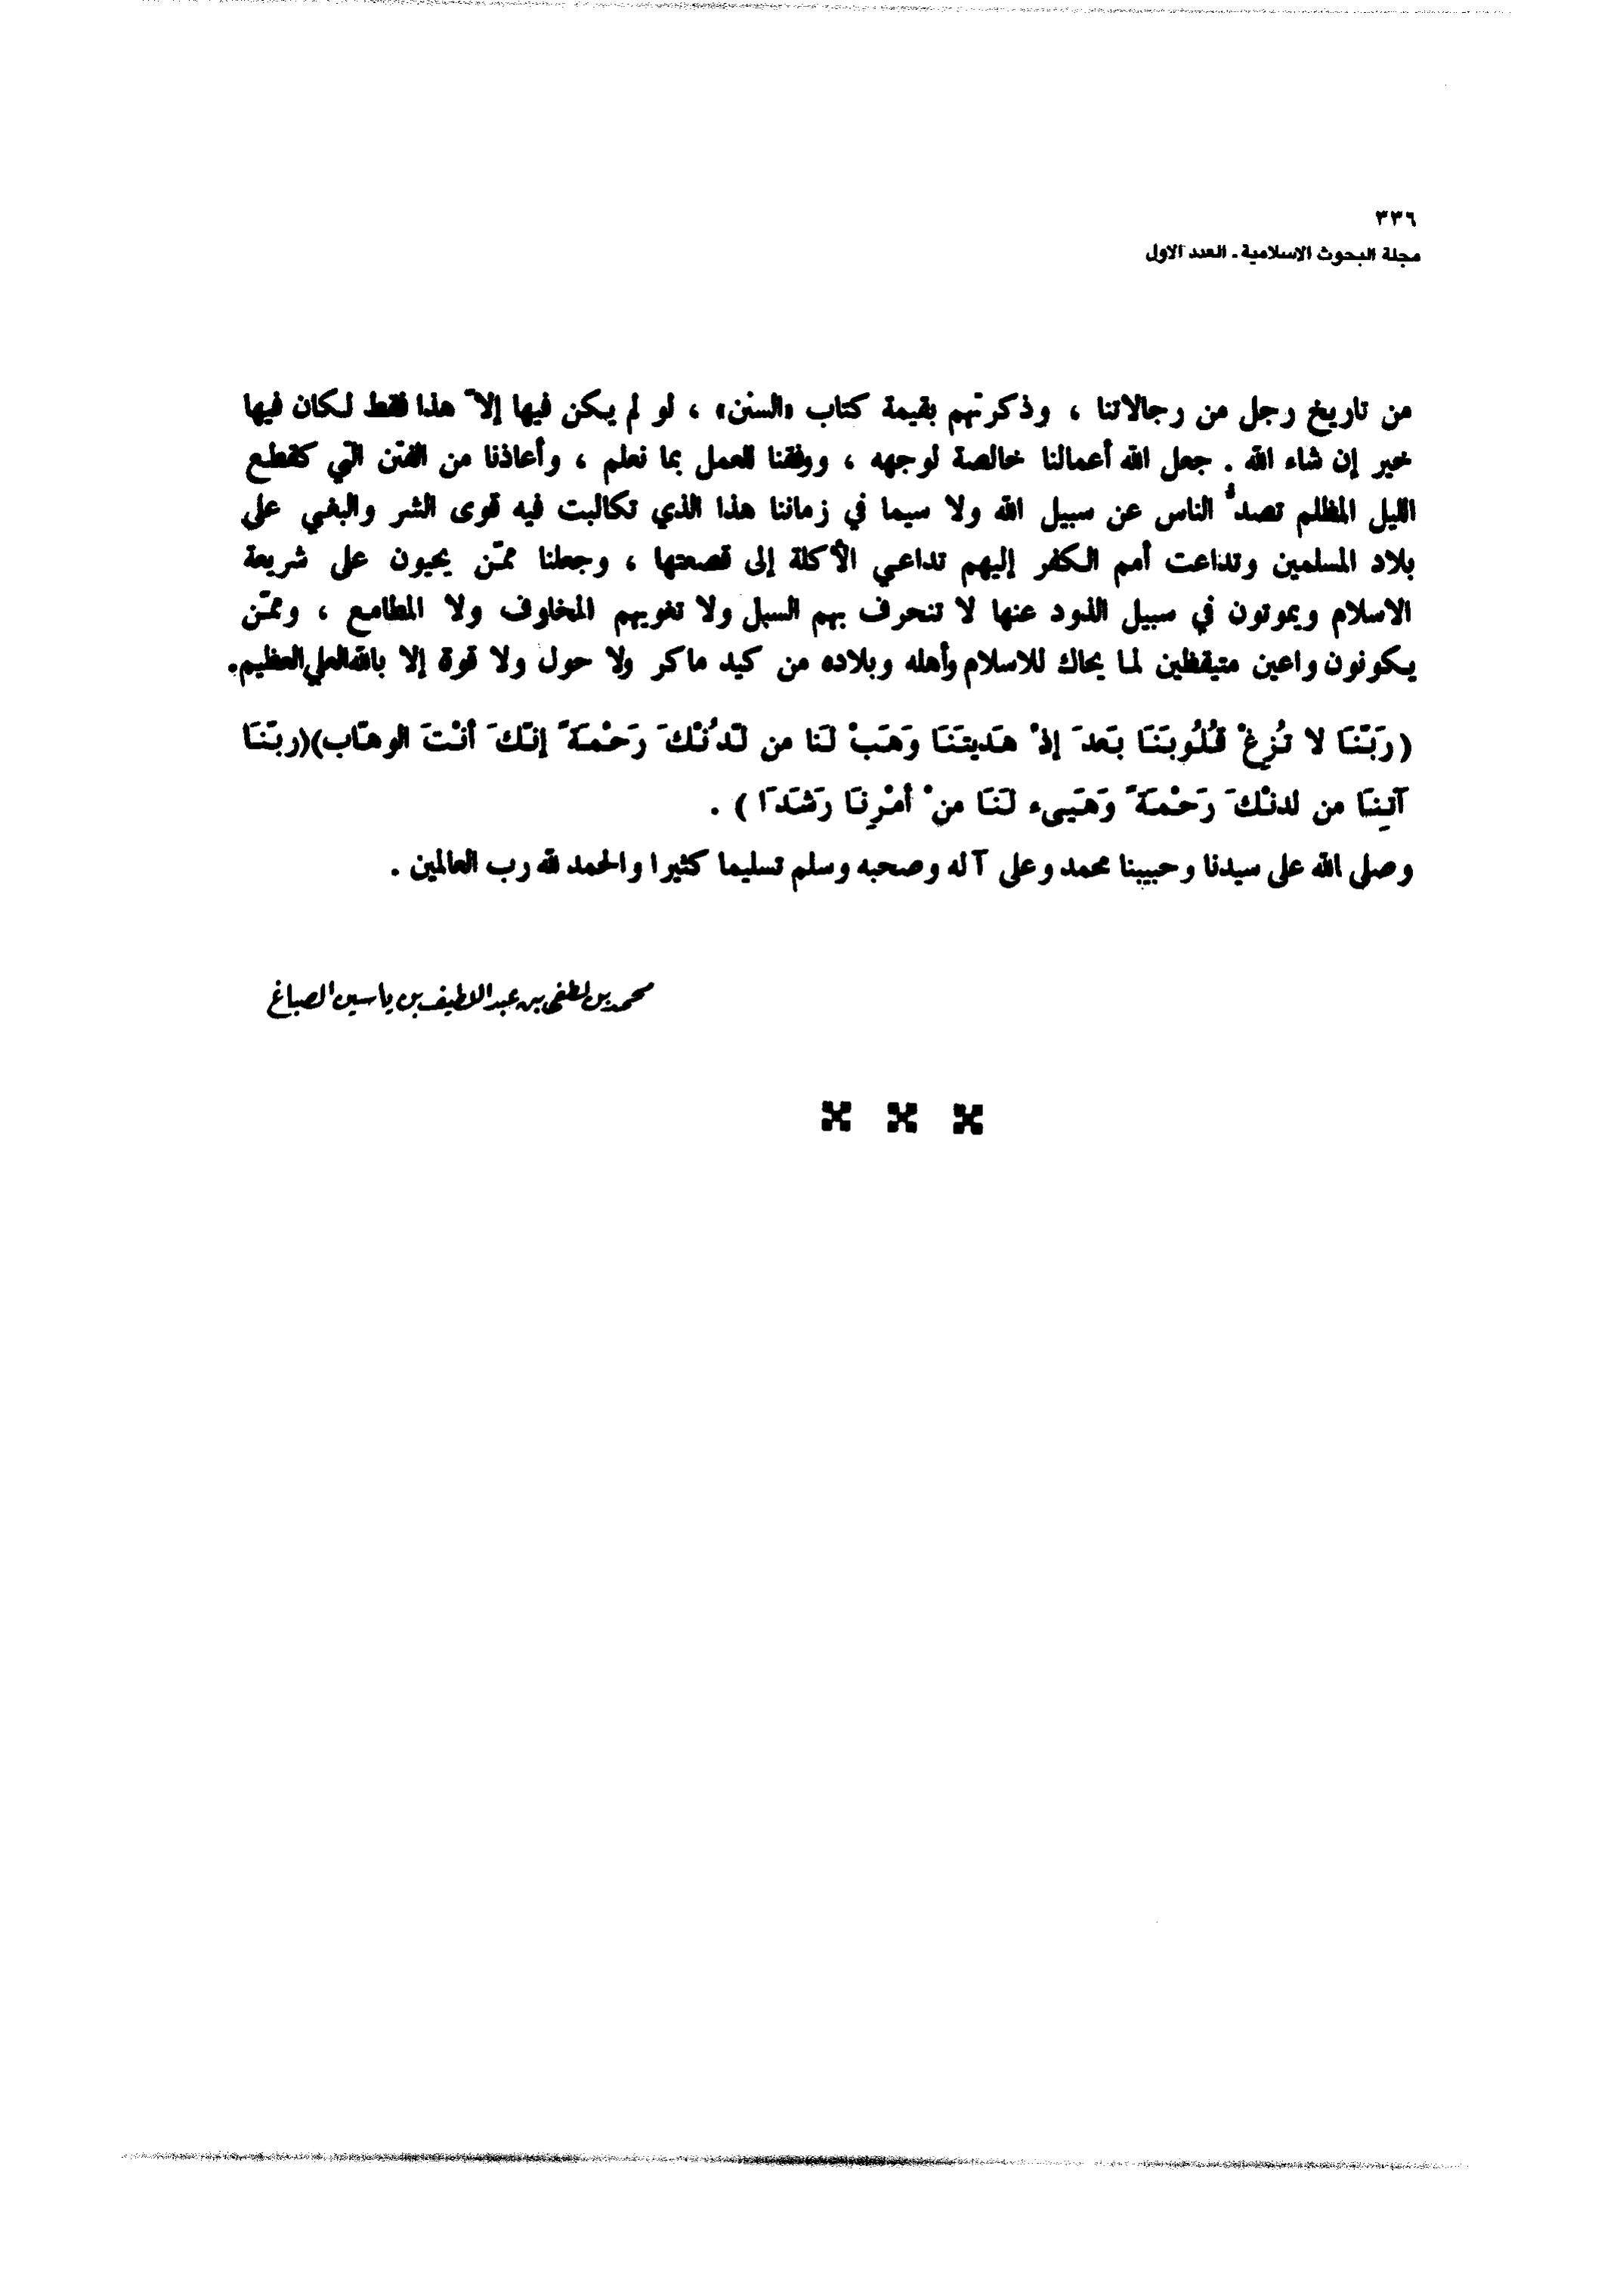 ٣٣٦
مجلة البحوث الاسلامية - العدد الاول
من تاريخ رجل من رجالاتنا ، وذكرتهم بقيمة كتاب «السنن» ، لو لم يكن فيها إلاّ هذا فقط لكان فيها
خير إن شاء الله . جعل الله أعمالنا خالصة لوجهه ، ووفقنا للعمل بما نعلم ، وأعاذنا من الفتن التي كقطع
الليل المظلم تصدُّ الناس عن سبيل الله ولا سيما في زماننا هذا الذي تكالبت فيه قوى الشر والبغي على
بلاد المسلمين وتداعت أمم الكفر إليهم تداعي الأكلة إلى قصعتها ، وجعلنا ممّن يحيون على شريعة
الاسلام ويموتون في سبيل الذود عنها لا تنحرف بهم السبل ولا تغويهم المخاوف ولا المطامع ، وممّن
يكونون واعين متيقظين لما يحاك للاسلام وأهله وبلاده من كيد ماكر ولا حول ولا قوة إلا بالله العلي العظيم.
(رَبّنَا لا تُزِغْ قُلُوبَنَا بَعدَ إذْ هَديتَنَا وَهَبْ لَنا من لّدُنْكَ رَحْمَةً إنّكَ أنْتَ الوهّاب)(ربّنَا
آتِنَا من لدنْكَ رَحْمَةً وَهَيىء لَنَا من ْ أمْرِنَا رَشَدَا ) .
وصلى الله على سيدنا وحبيبنا محمد وعلى آله وصحبه وسلم تسليما كثيرا والحمد لله رب العالمين .
محمد بن لطفي بن عبد اللطيف بن ياسين الصباغ